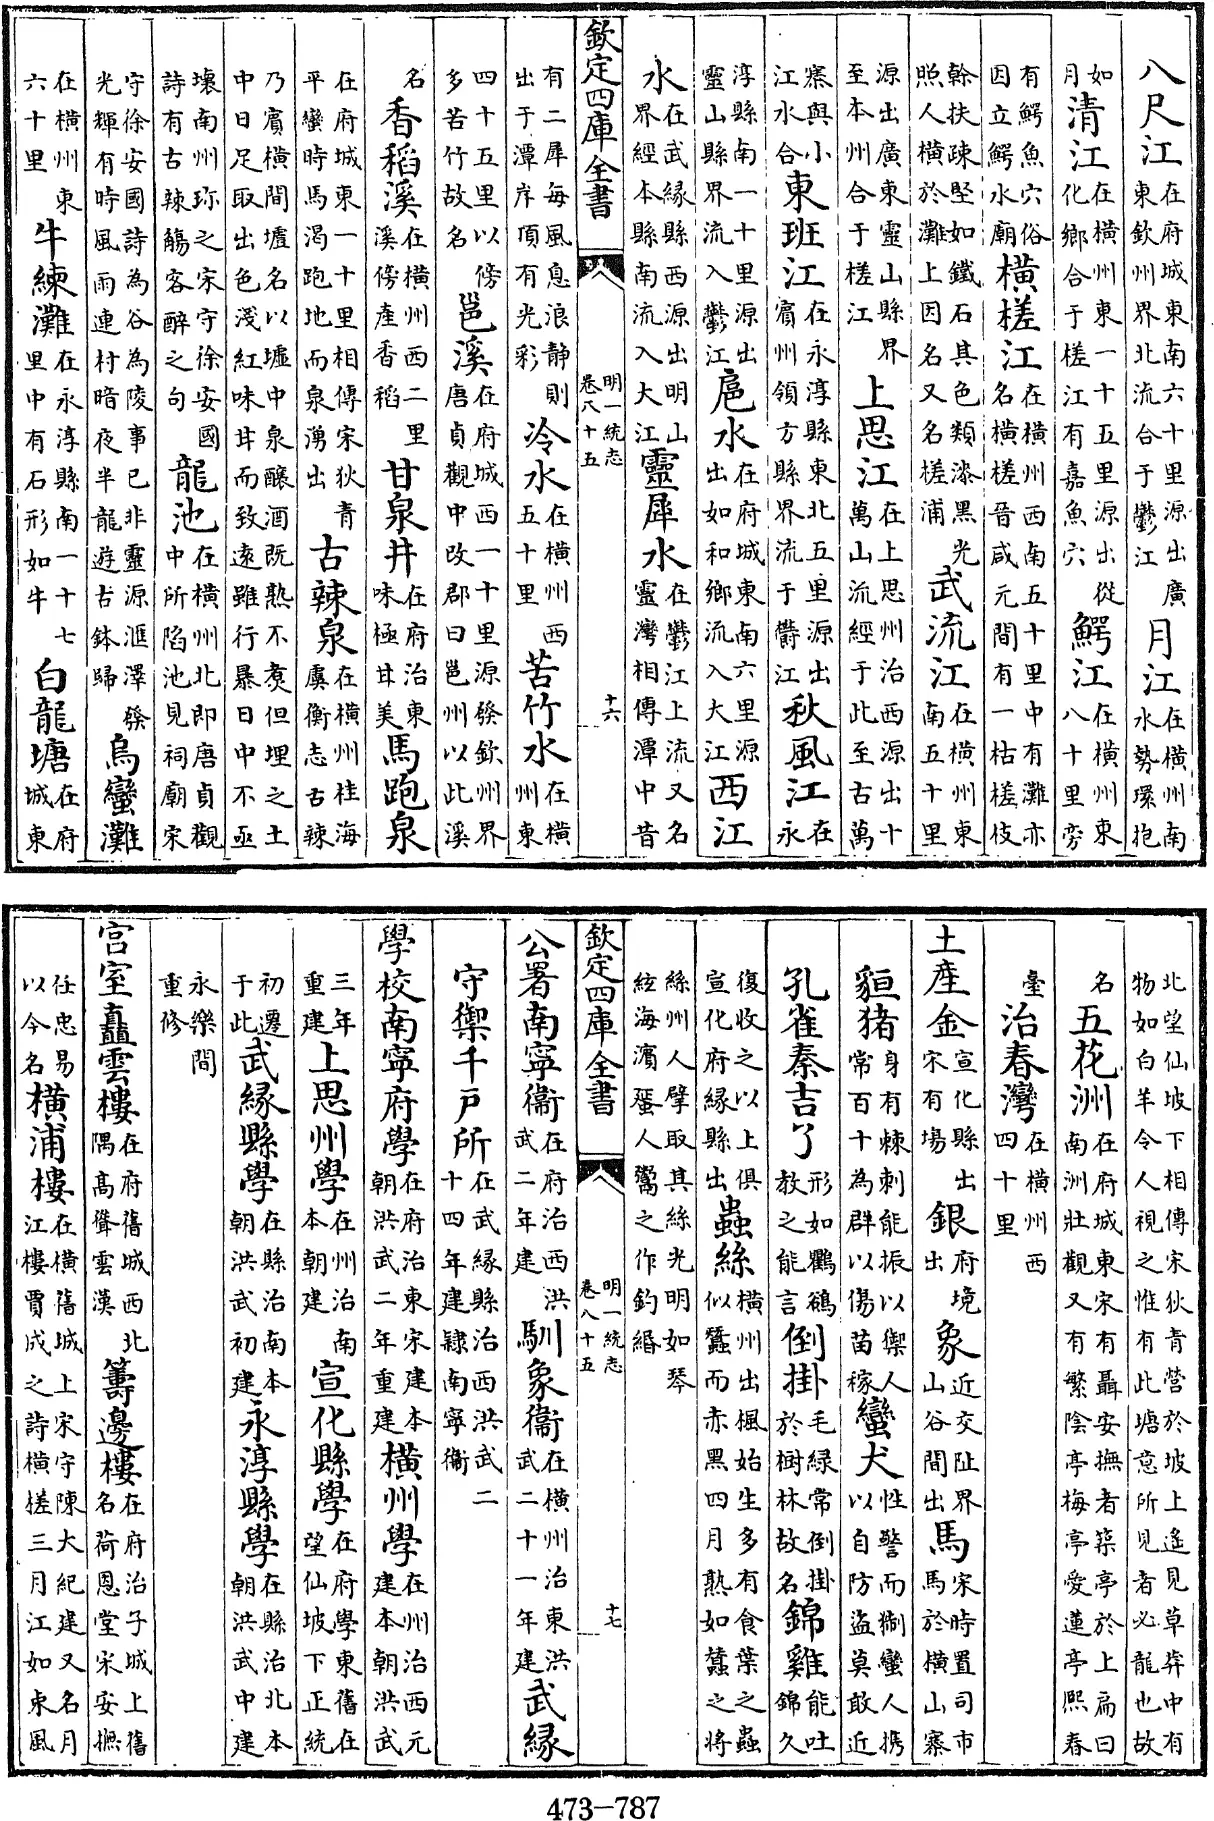 八尺江在府城東南六十里源出廣東欽州界北流合于鬱江月江在橫州南水勢環抱
如月清江在橫州東一十五里源出從化鄉合于槎江有嘉魚穴鰐江在橫州東八十里旁
有鰐魚穴俗因立鰐水廟橫槎江在橫州西南五十里中有灘亦名橫槎晉咸元間有一枯槎枝
幹扶疎堅如鐵石其色類漆黑光照人橫於灘上因名又名槎浦武流江在橫州東南五十里
源出廣東靈山縣界至本州合于槎江上思江在上思州治西源出十萬山流經于此至古萬
寨與小江水合東班江在永淳縣東北五里源出賔州領方縣界流于欝江秋風江在永
淳縣南一十里源出靈山縣界流入鬱江扈水在府城東南六里源出如和鄉流入大江西江
水在武緣縣西源出明山界經本縣南流入大江靈犀水在鬱江上流又名靈灣相傳潭中昔
欽定四庫全書 明一統志 卷八十五 十六
有二犀每風息浪静則出于潭岸頂有光彩冷水在橫州西五十里苦竹水在橫州東
四十五里以傍多苦竹故名邕溪在府城西一十里源發欽州界唐貞觀中改郡曰邕州以此溪
名香稻溪在橫州西二里溪傍產香稻甘泉井在府治東味極甘美馬跑泉
在府城東一十里相傳宋狄青平蠻時馬渴跑地而泉湧出古辣泉在橫州桂海虞衡志古辣
乃賔橫間墟名以墟中泉釀酒既熟不煑但埋之土中日足取出色淺紅味甘而致遠雖行暴日中不亟
壞南州珍之宋守徐安國詩有古辣觴客醉之句龍池在橫州北即唐貞觀中所陷池見祠廟宋
守徐安國詩為谷為陵事已非靈源滙澤發光輝有時風雨連村暗夜半龍遊古鉢歸烏蠻灘
在橫州東六十里牛練灘在永淳縣南一十七里中有石形如牛白龍塘在府城東
北望仙坡下相傳宋狄青營於坡上遙見草莽中有物如白羊令人視之惟有此塘意所見者必龍也故
名五花洲在府城東宋有聶安撫者築亭於上扁曰南洲壯觀又有繁陰亭梅亭愛蓮亭熙春
臺治春灣在橫州西四十里
土產金宣化縣出宋有場銀府境出象近交阯界山谷間出馬宋時置司市馬於橫山寨
貆猪身有棘刺能振以禦人常百十為群以傷苗稼蠻犬性警而猘蠻人携以自防盜莫敢近
孔雀秦吉了形如鸜鵒教之能言倒掛毛綠常倒掛於樹林故名錦雞能吐錦久
復收之以上俱宣化府緣縣出蟲絲橫州出楓始生多有食葉之蟲似蠶而赤黑四月熟如蠶之將
絲州人擘取其絲光明如琴絃海濵蜑人鬻之作釣緡
欽定四庫全書 明一統志 卷八十五 十七
公署南寧衞在府治西洪武二年建馴象衞在橫州治東洪武二十一年建武緣
守禦千戶所在武緣縣治西洪武二十四年建隸南寧衞
學校南寧府學在府治東宋建本朝洪武二年重建橫州學在州治西元建本朝洪武
三年重建上思州學在州治南本朝建宣化縣學在府學東舊在望仙坡下正統
初遷于此武緣縣學在縣治南本朝洪武初建永淳縣學在縣治北本朝洪武中建
永樂間重修
宫室矗雲樓在府舊城西北隅髙聳雲漢籌邊樓在府治子城上舊名荷恩堂宋安撫
任忠易以今名橫浦樓在橫舊城上宋守陳大紀建又名月江樓賈成之詩橫槎三月江如東風
473-787